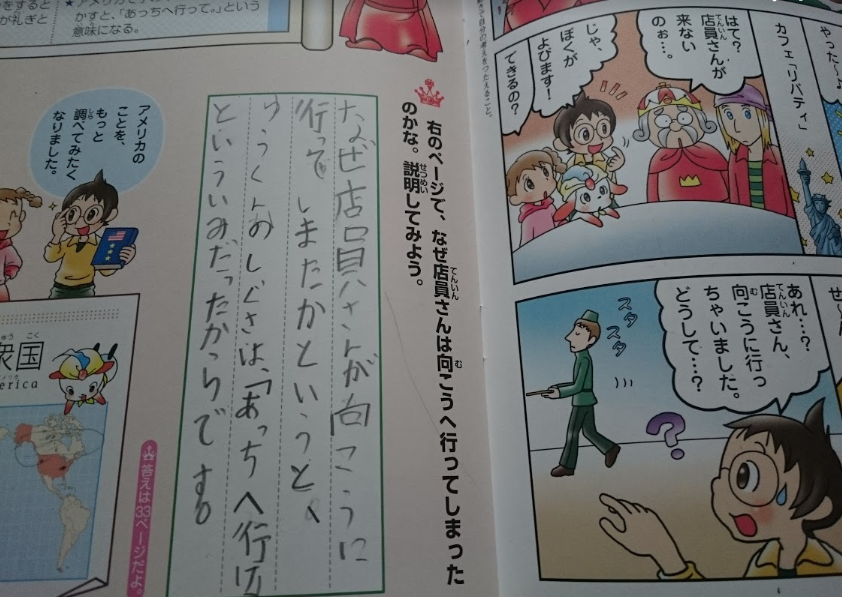 やった〜♪
カフェ「リバティ」
はて？
店員さんが
来ない
のぉ…。
じゃ、
ぼくが
よびます！
できるの？
って自分の考えをつたえること。
あれ…？
店員さん、
向こうに行っ
ちゃいました。
どうして…？
スタ
スタ
右のページで、なぜ店員さんは向こうへ行ってしまった
のかな。説明してみよう。
なぜ店員さんが向こうに
行ってしまたかというと、
ゆうくんのしぐさは、「あっちへ行け
といういみだったからです。
答えは33ページだよ。
かすと、「あっちへ行って。」という
意味になる。
をすると
が礼ぎと
アメリカの
ことを、
もっと
調べてみたく
なりました。
衆国
erica